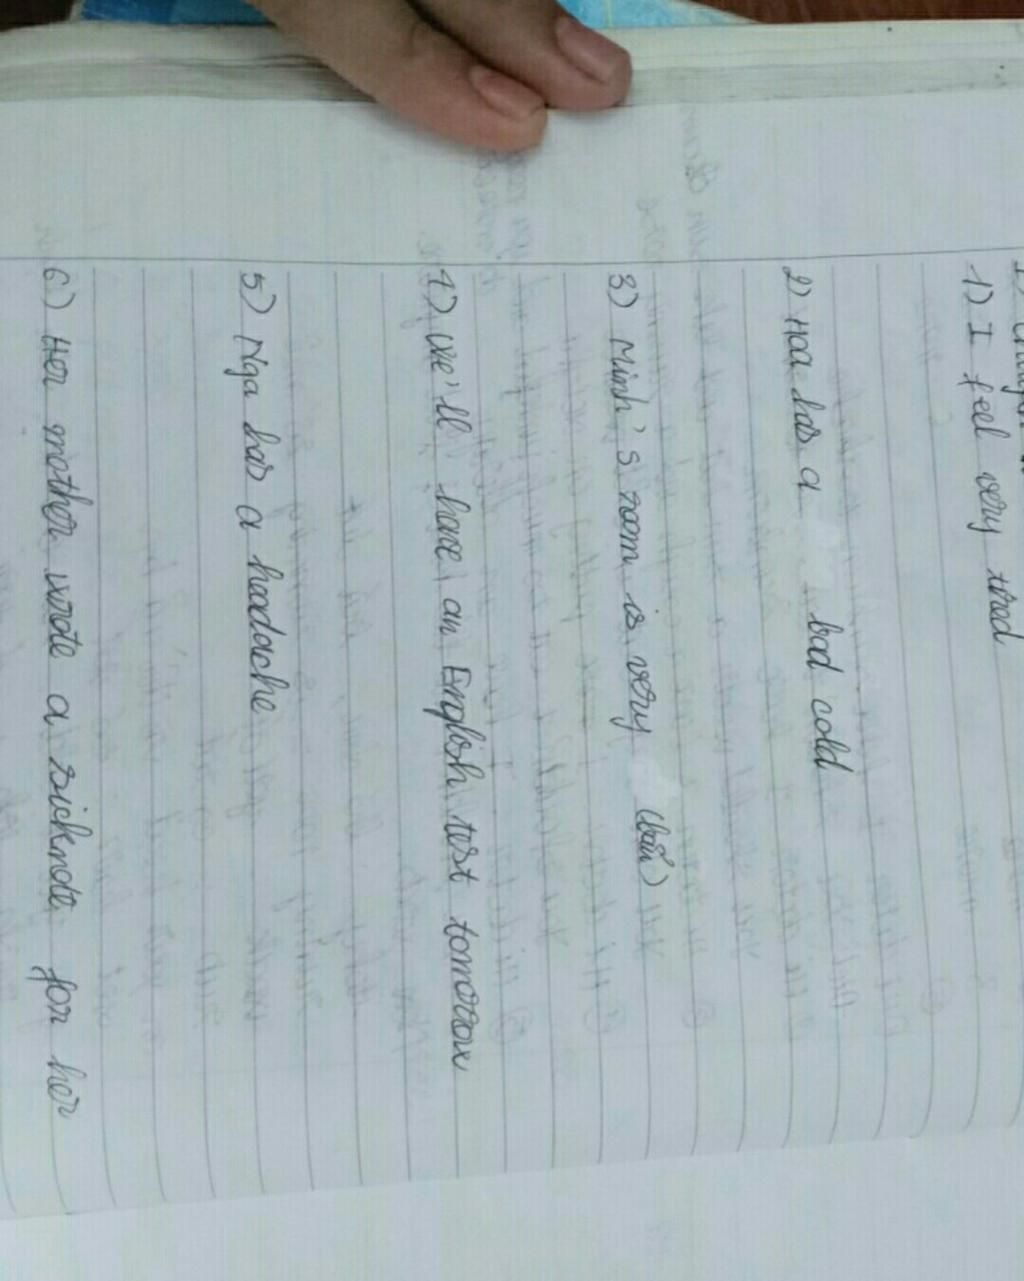 1) I feel very tired
2) Hoa has a bad cold
3) Minh's room is very (bẩn)
4) We'll have an English test tomorrow
5) Nga has a headache
6) Her mother wrote a sicknote for her